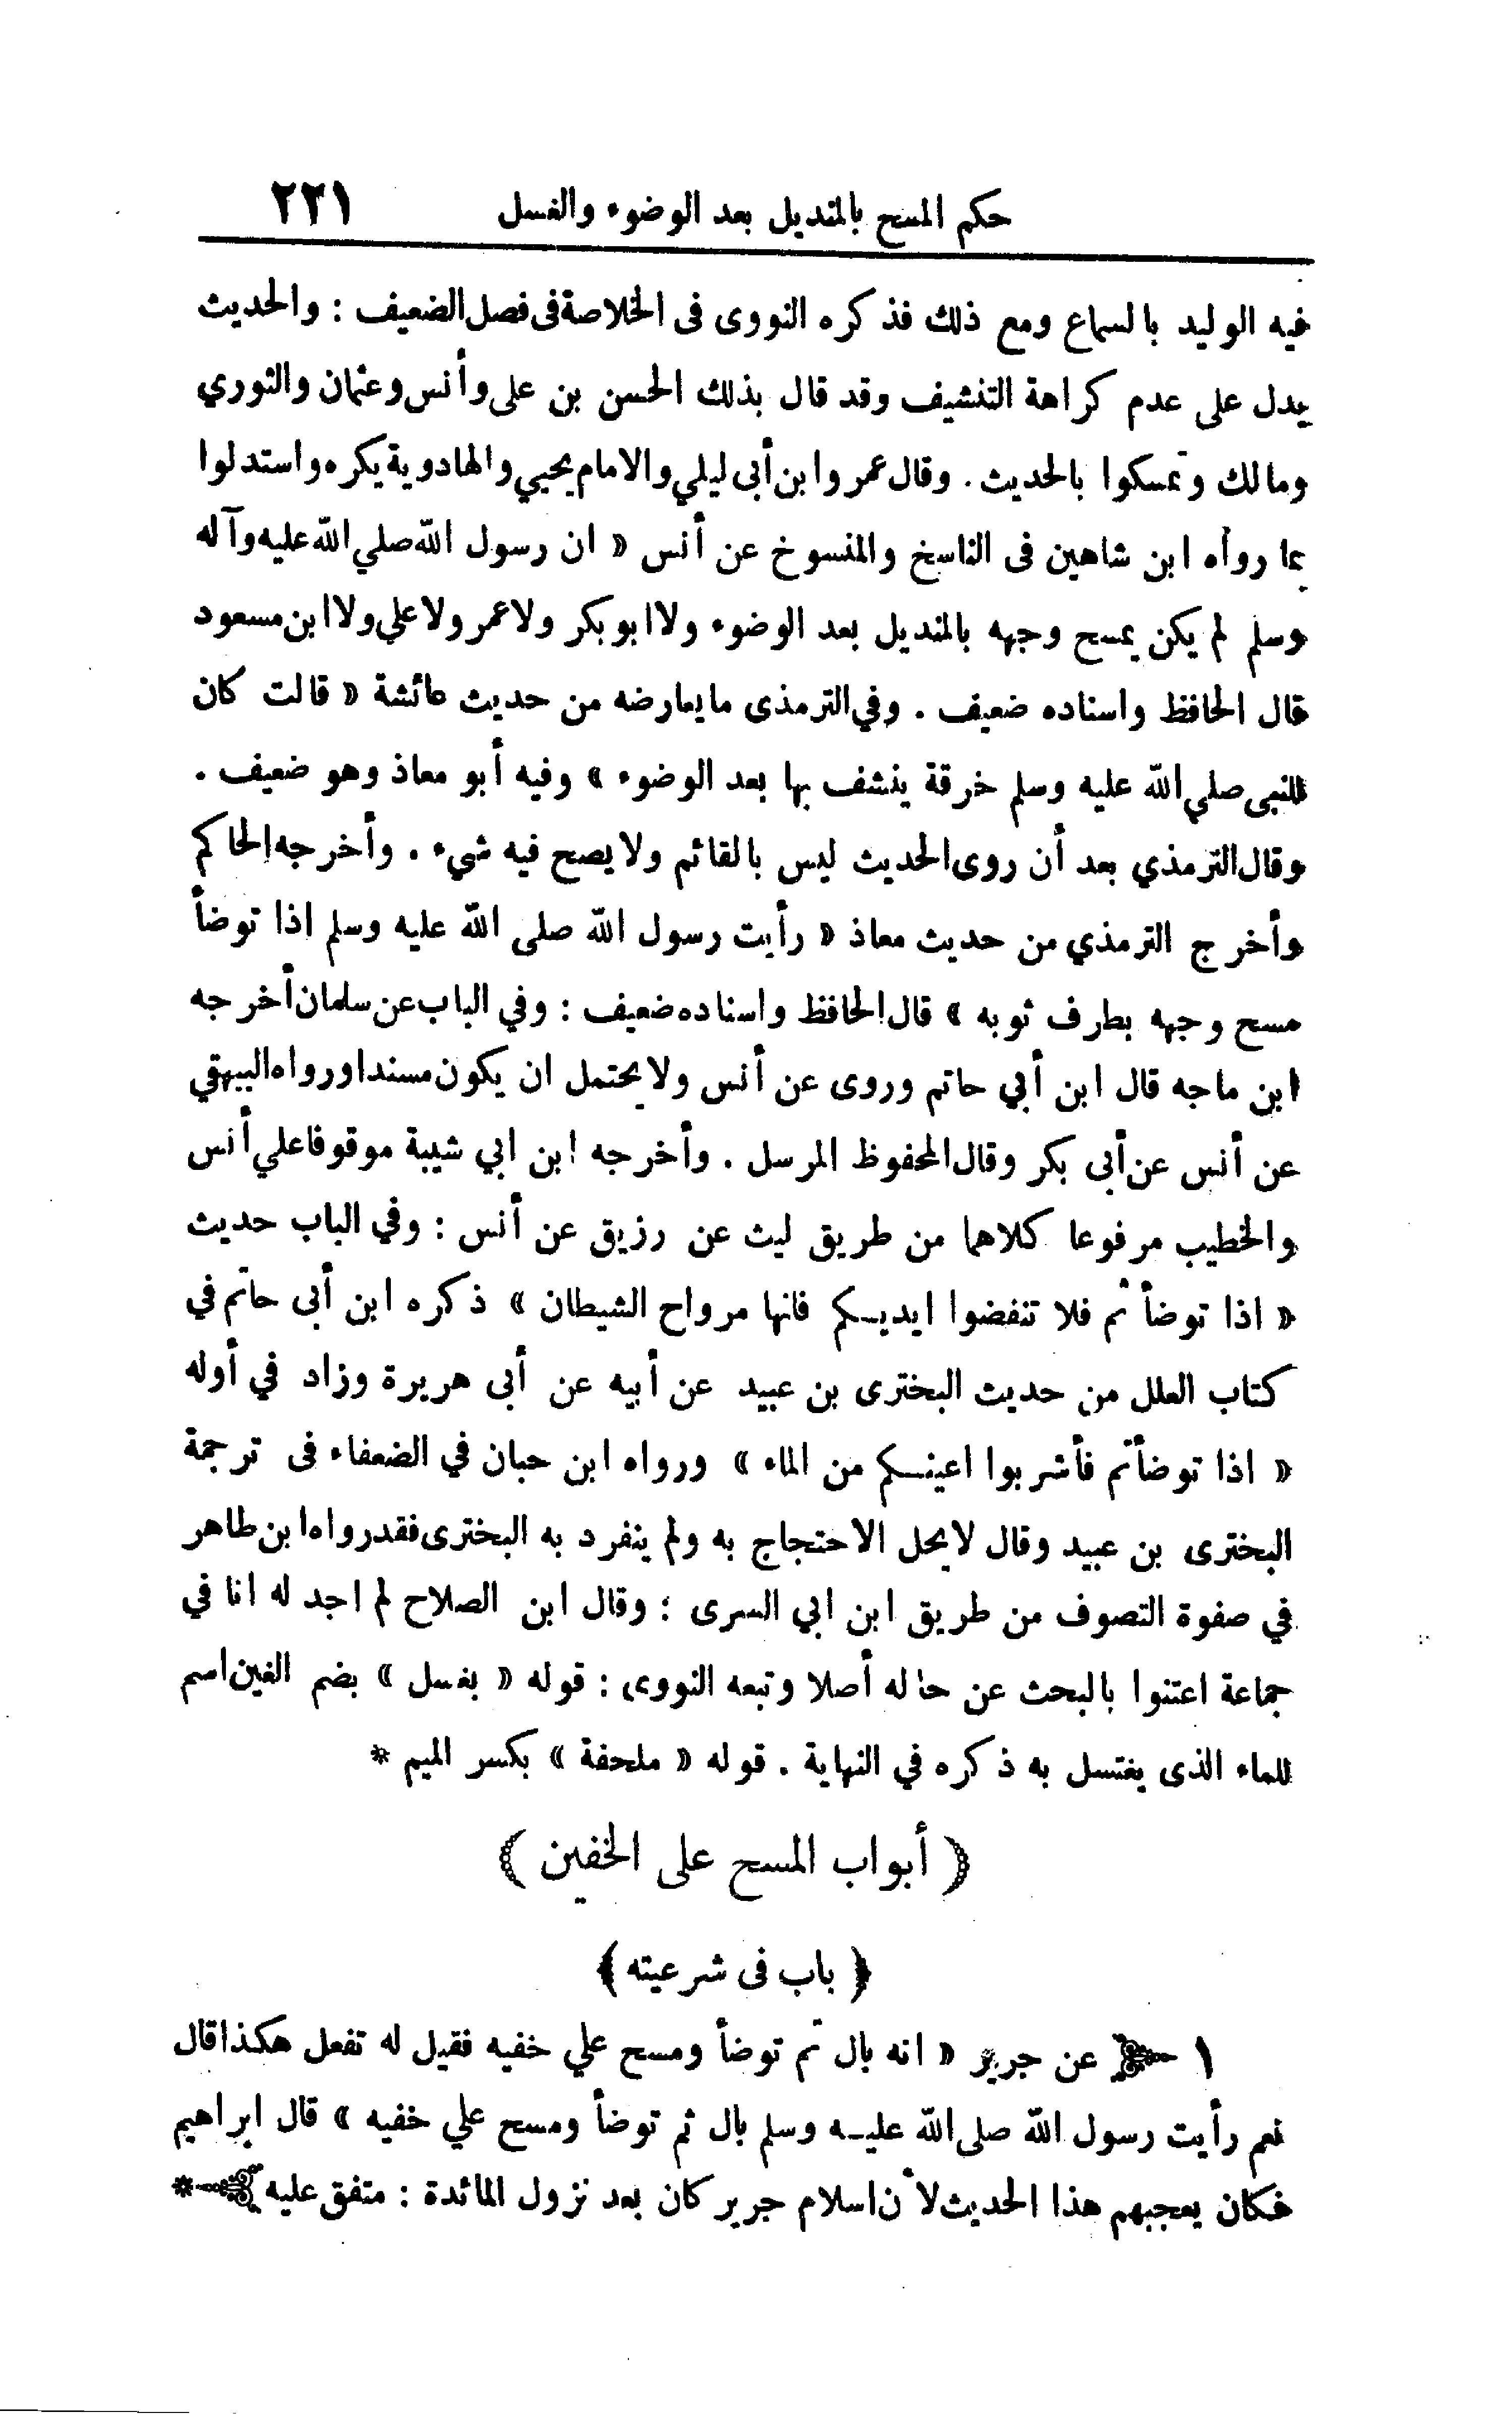 حكم المسح بالمنديل بعد الوضوء والغسل ٢٢١
فيه الوليد بالسماع ومع ذلك فذكره النووى فى الخلاصة فى فصل الضعيف : والحديث
يدل على عدم كراهة التنشيف وقد قال بذلك الحسن بن على وأنس وعثمان والثوري
ومالك وتمسكوا بالحديث . وقال عمر وابن أبى ليلي والامام يحيي والهادوية يكره واستدلوا
بما رواه ابن شاهين فى الناسخ والمنسوخ عن أنس « ان رسول الله صلي الله عليه وآله
وسلم لم يكن يمسح وجهه بالمنديل بعد الوضوء ولا ابو بكر ولا عمر ولا علي ولا ابن مسعود
قال الحافظ واسناده ضعيف . وفي الترمذى ما يعارضه من حديث عائشة « قالت كان
للنبى صلي الله عليه وسلم خرقة ينشف بها بعد الوضوء » وفيه أبو معاذ وهو ضعيف .
وقال الترمذي بعد أن روى الحديث ليس بالقائم ولا يصح فيه شيء . وأخرجه الحاكم
وأخرج الترمذي من حديث معاذ « رأيت رسول الله صلى الله عليه وسلم اذا توضأ
مسح وجهه بطرف ثوبه » قال الحافظ واسناده ضعيف : وفي الباب عن سلمان أخرجه
ابن ماجه قال ابن أبي حاتم وروى عن أنس ولا يحتمل ان يكون مسندا ورواه البيهقي
عن أنس عن أبى بكر وقال المحفوظ المرسل . وأخرجه ابن ابي شيبة موقوفا علي أنس
والخطيب مرفوعا كلاهما من طريق ليث عن رزيق عن أنس : وفي الباب حديث
« اذا توضأتم فلا تنفضوا ايديكم فانها مرواح الشيطان » ذكره ابن أبى حاتم في
كتاب العلل من حديث البخترى بن عبيد عن أبيه عن أبى هريرة وزاد في أوله
« اذا توضأتم فأشربوا اعينكم من الماء » ورواه ابن حبان في الضعفاء فى ترجمة
البخترى بن عبيد وقال لا يحل الاحتجاج به ولم ينفرد به البخترى فقد رواه ابن طاهر
في صفوة التصوف من طريق ابن ابي السرى : وقال ابن الصلاح لم اجد له انا في
جماعة اعتنوا بالبحث عن حاله أصلا وتبعه النووى : قوله « بغسل » بضم الغين اسم
للماء الذى يغتسل به ذكره في النهاية . قوله « ملحفة » بكسر الميم *
( أبواب المسح على الخفين )
﴿ باب فى شرعيته ﴾
١ عن جرير « انه بال ثم توضأ ومسح علي خفيه فقيل له تفعل هكذا قال
نعم رأيت رسول الله صلى الله عليه وسلم بال ثم توضأ ومسح علي خفيه » قال ابراهيم
فكان يعجبهم هذا الحديث لأن اسلام جرير كان بعد نزول المائدة : متفق عليه *